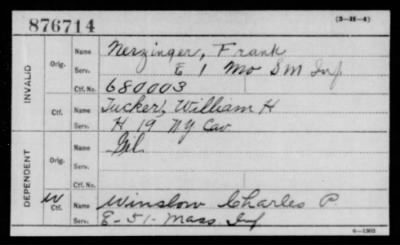 876714 (3-H-4)
INVALID
Orig. Name Nerzinger, Frank
Serv. E 1 Mo S M Inf
Ctf. No. 680003
Ctf. Name Tucker, William H
Serv. H 19 NY Cav
DEPENDENT
Orig. Name
Serv.
Ctf. No.
W Ctf. Name Winslow Charles P.
Serv. E-51-Mass. Inf
6-1903